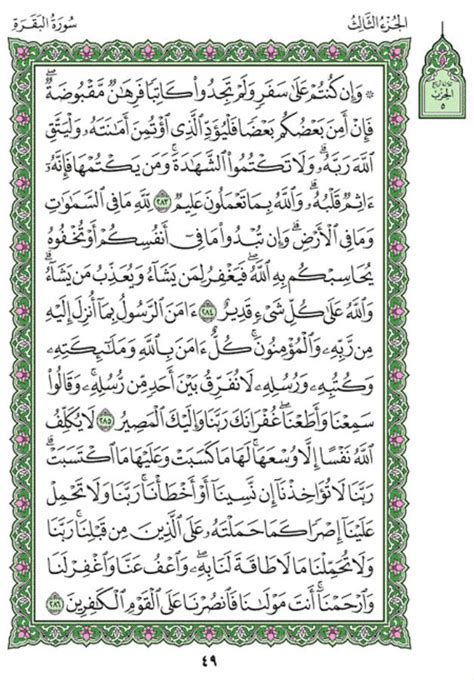 سُورَةُ البَقَرَةِ
الجُزْءُ الثَّالِثُ
الحِزْب
٥
۞ وَإِن كُنتُمْ عَلَىٰ سَفَرٍ وَلَمْ تَجِدُوا۟ كَاتِبًا فَرِهَٰنٌ مَّقْبُوضَةٌ ۖ
فَإِنْ أَمِنَ بَعْضُكُم بَعْضًا فَلْيُؤَدِّ ٱلَّذِى ٱؤْتُمِنَ أَمَٰنَتَهُۥ وَلْيَتَّقِ
ٱللَّهَ رَبَّهُۥ ۗ وَلَا تَكْتُمُوا۟ ٱلشَّهَٰدَةَ ۚ وَمَن يَكْتُمْهَا فَإِنَّهُۥٓ
ءَاثِمٌ قَلْبُهُۥ ۗ وَٱللَّهُ بِمَا تَعْمَلُونَ عَلِيمٌ ٢٨٣ لِّلَّهِ مَا فِى ٱلسَّمَٰوَٰتِ
وَمَا فِى ٱلْأَرْضِ ۗ وَإِن تُبْدُوا۟ مَا فِىٓ أَنفُسِكُمْ أَوْ تُخْفُوهُ
يُحَاسِبْكُم بِهِ ٱللَّهُ ۖ فَيَغْفِرُ لِمَن يَشَآءُ وَيُعَذِّبُ مَن يَشَآءُ ۗ
وَٱللَّهُ عَلَىٰ كُلِّ شَىْءٍ قَدِيرٌ ٢٨٤ ءَامَنَ ٱلرَّسُولُ بِمَآ أُنزِلَ إِلَيْهِ
مِن رَّبِّهِۦ وَٱلْمُؤْمِنُونَ ۚ كُلٌّ ءَامَنَ بِٱللَّهِ وَمَلَٰٓئِكَتِهِۦ
وَكُتُبِهِۦ وَرُسُلِهِۦ لَا نُفَرِّقُ بَيْنَ أَحَدٍ مِّن رُّسُلِهِۦ ۚ وَقَالُوا۟
سَمِعْنَا وَأَطَعْنَا ۖ غُفْرَانَكَ رَبَّنَا وَإِلَيْكَ ٱلْمَصِيرُ ٢٨٥ لَا يُكَلِّفُ
ٱللَّهُ نَفْسًا إِلَّا وُسْعَهَا ۚ لَهَا مَا كَسَبَتْ وَعَلَيْهَا مَا ٱكْتَسَبَتْ ۗ
رَبَّنَا لَا تُؤَاخِذْنَآ إِن نَّسِينَآ أَوْ أَخْطَأْنَا ۚ رَبَّنَا وَلَا تَحْمِلْ
عَلَيْنَآ إِصْرًا كَمَا حَمَلْتَهُۥ عَلَى ٱلَّذِينَ مِن قَبْلِنَا ۚ رَبَّنَا
وَلَا تُحَمِّلْنَا مَا لَا طَاقَةَ لَنَا بِهِۦ ۖ وَٱعْفُ عَنَّا وَٱغْفِرْ لَنَا
وَٱرْحَمْنَآ ۚ أَنتَ مَوْلَىٰنَا فَٱنصُرْنَا عَلَى ٱلْقَوْمِ ٱلْكَٰفِرِينَ ٢٨٦
٤٩